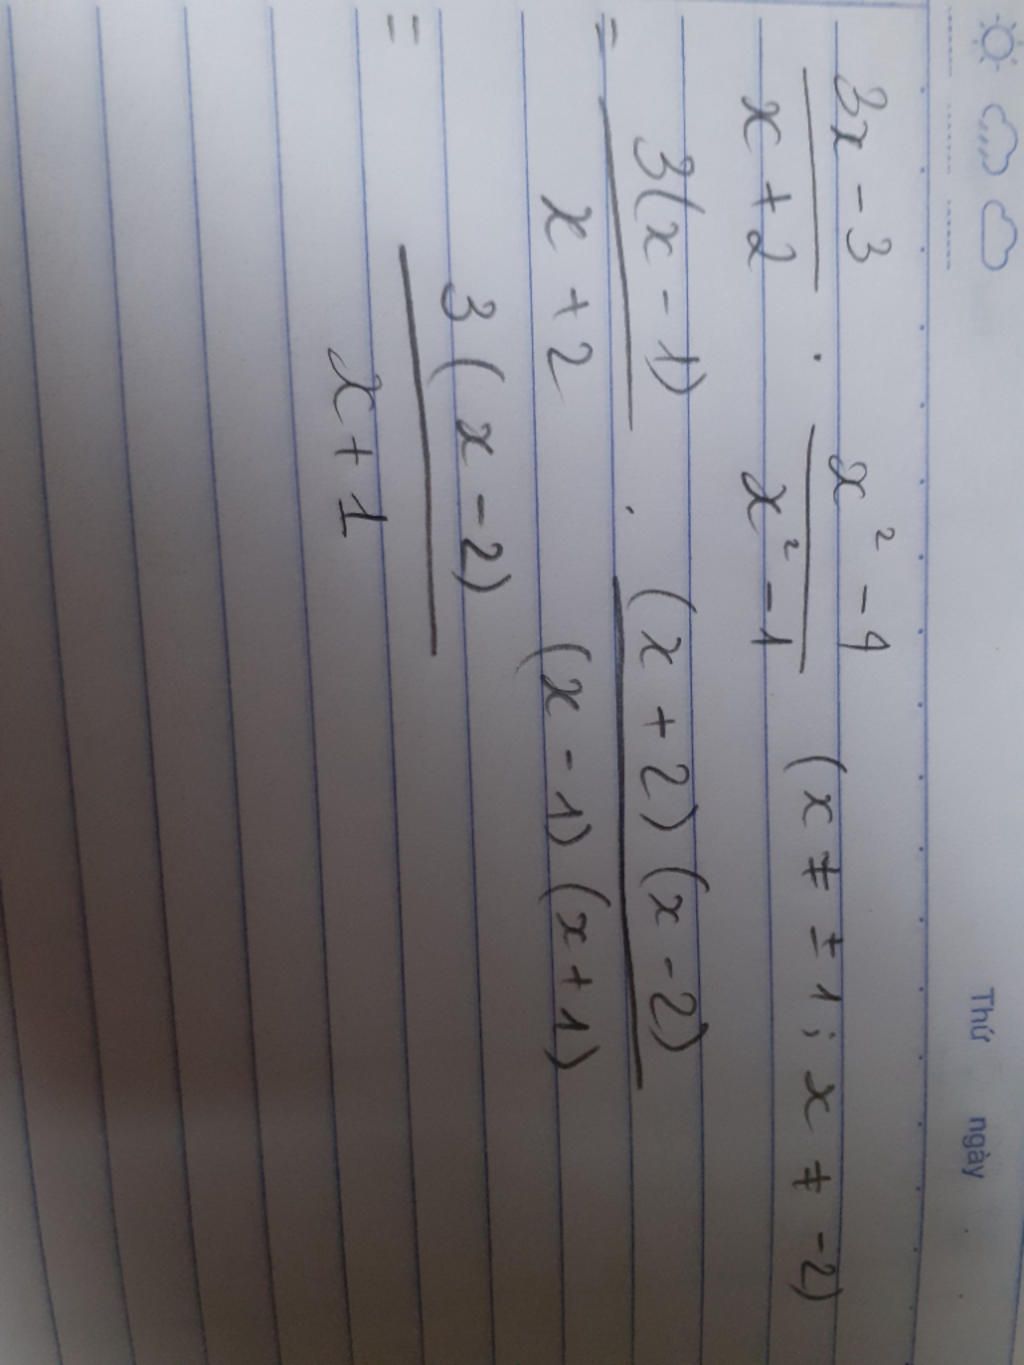 Thứ ngày
3x - 3 / x + 2 . x² - 4 / x² - 1 (x ≠ ± 1; x ≠ -2)
= 3(x - 1) / x + 2 . (x + 2)(x - 2) / (x - 1)(x + 1)
= 3(x - 2) / x + 1